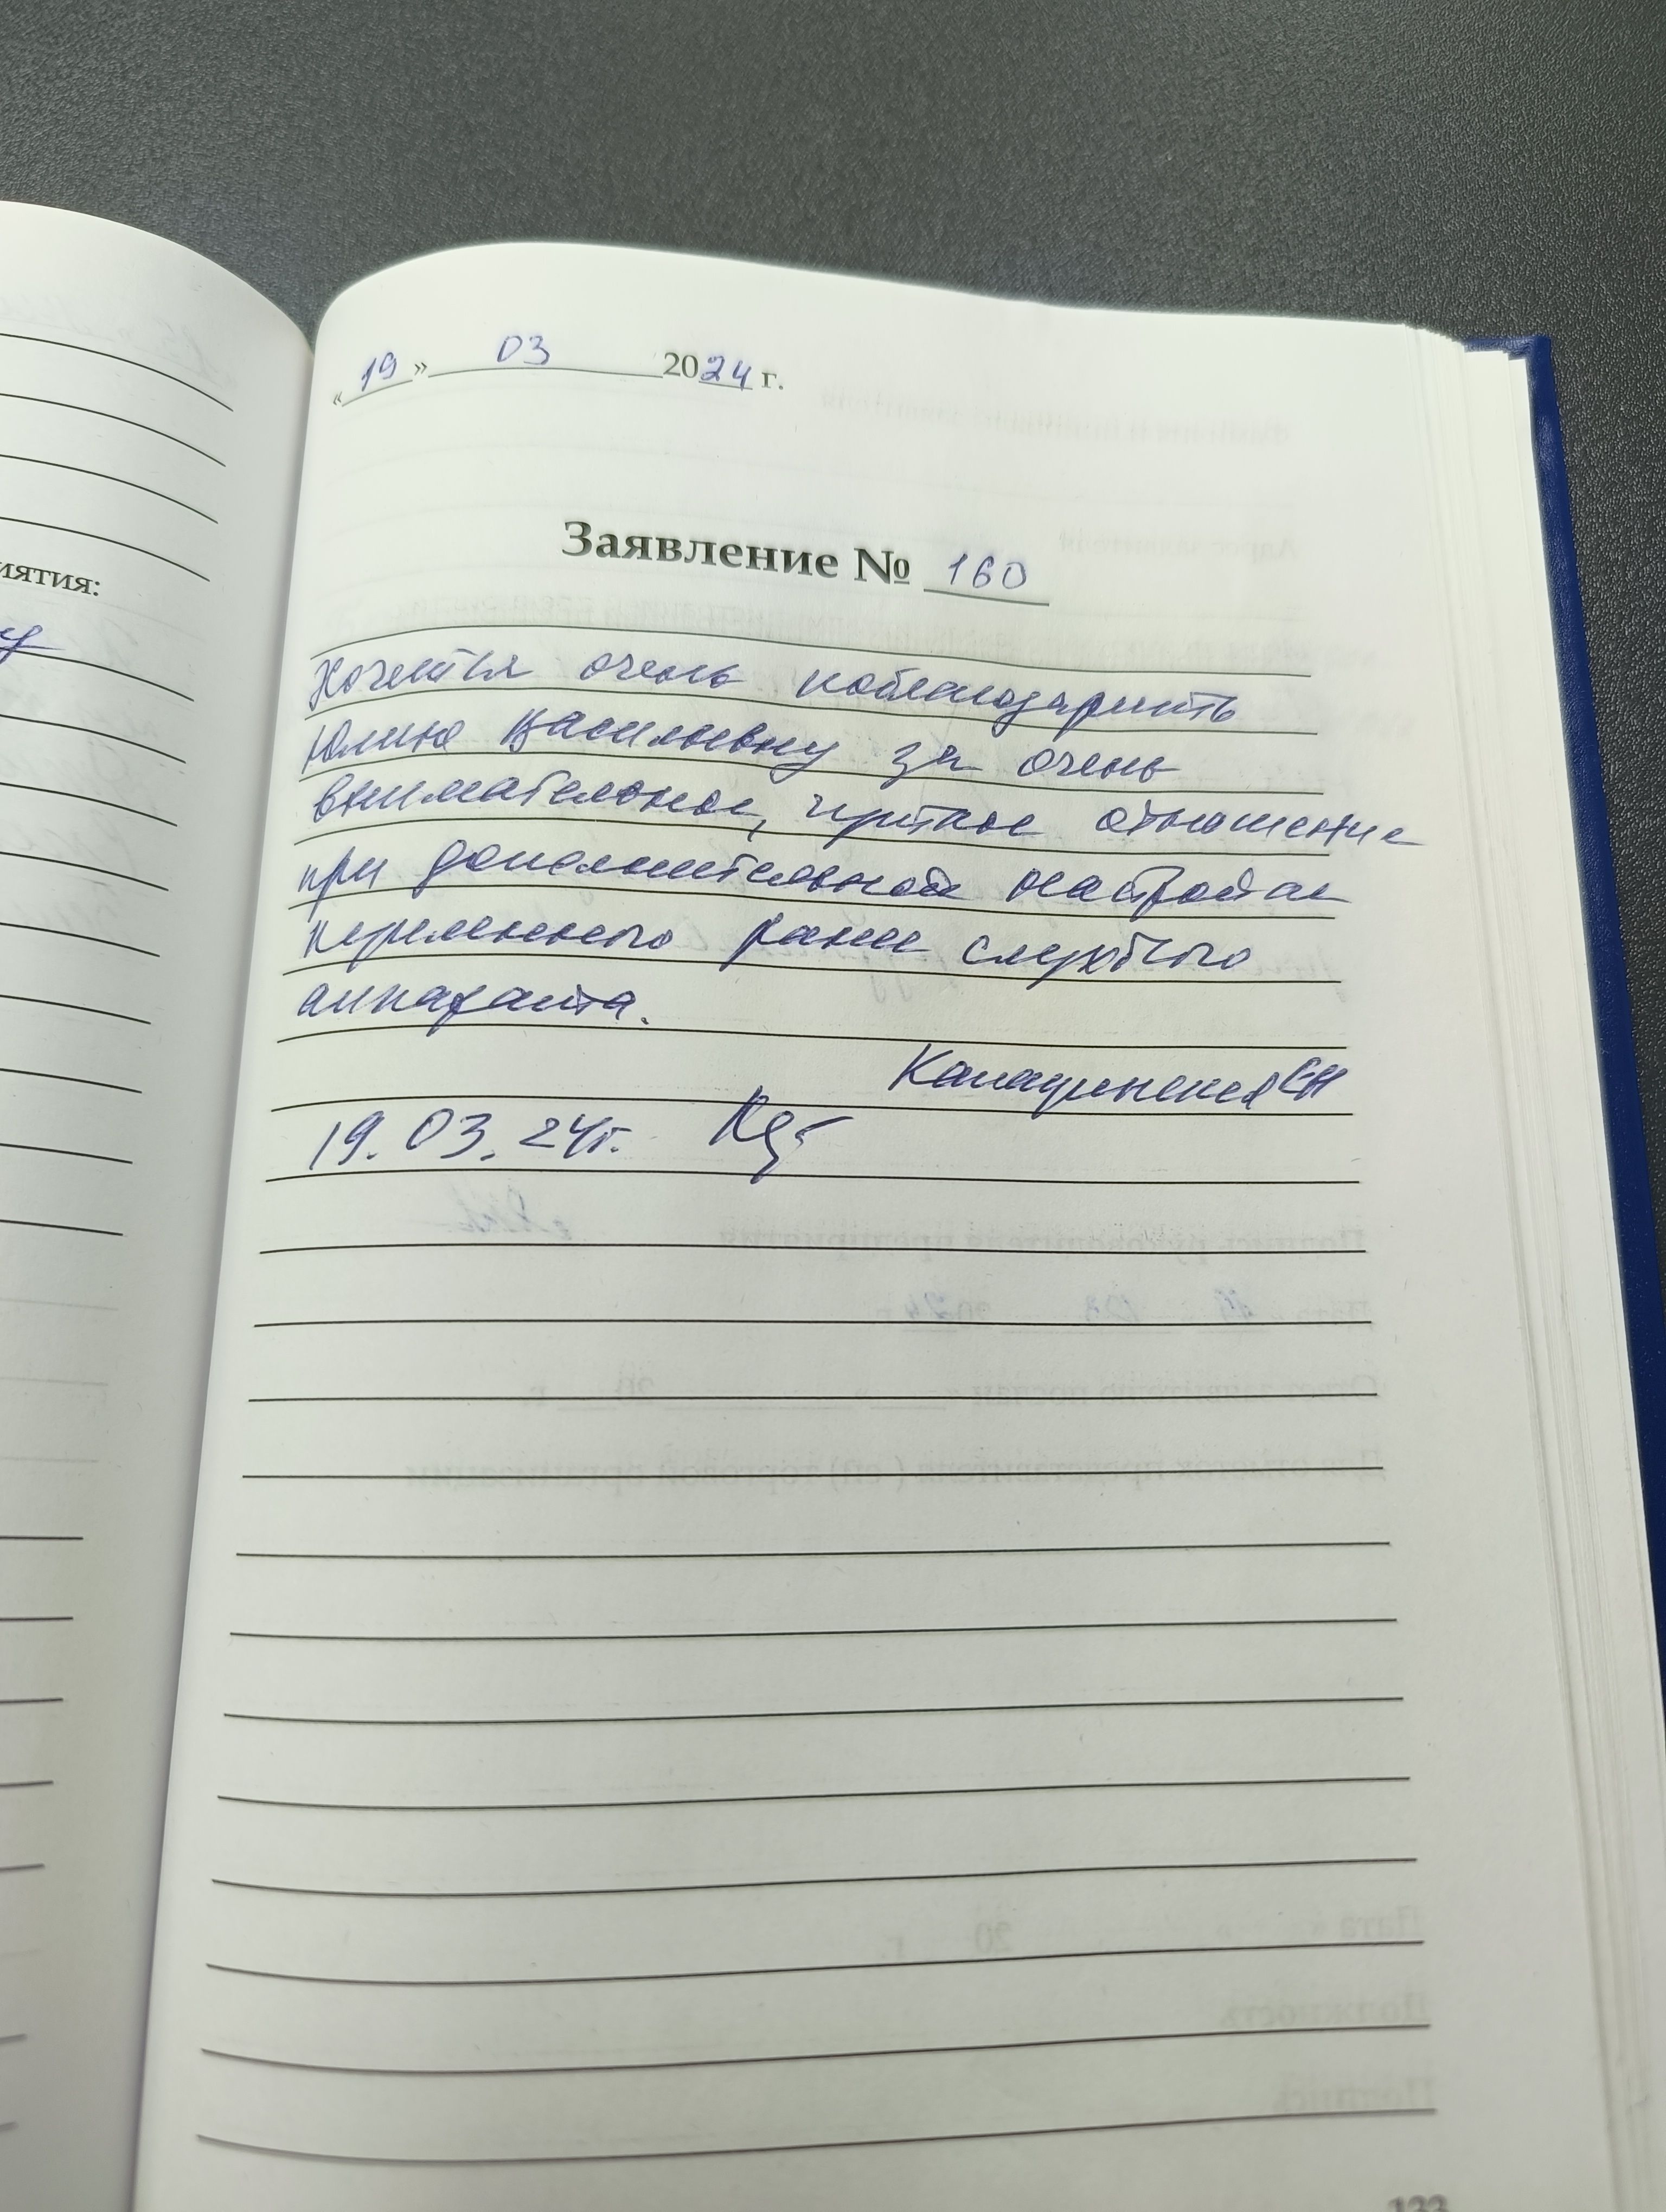 иятия:
« 19 » 03 2024 г.
Заявление № 160
Хочется очень поблагодарить
Юлию Васильевну за очень
внимательное, чуткое отношение
при дополнительной настройке
ранее слухового
аппарата.
19.03.24г.
133